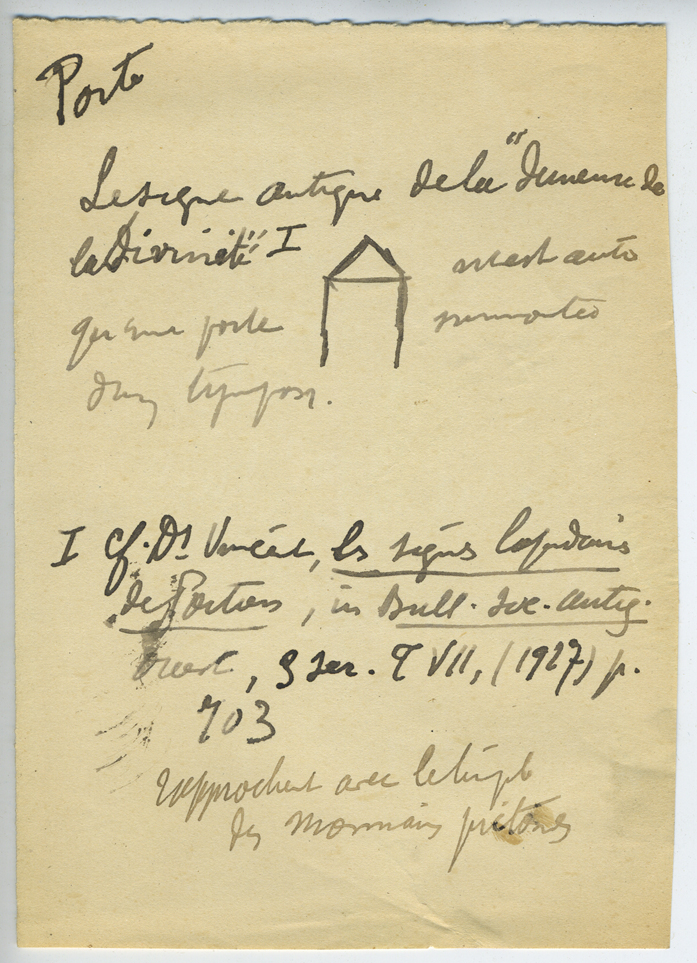 Porte
Le signe antique de la "Demeure de
la Divinité" I n'est autre
qu'une porte surmontée
d'un tympan.
I cf. Dr Vincent, les signes lapidaires
de Poitiers, in Bull. Soc. antiq.
Ouest, 3 ser. T VII, (1927) p.
703
rapprochent avec le temple
des monnaies